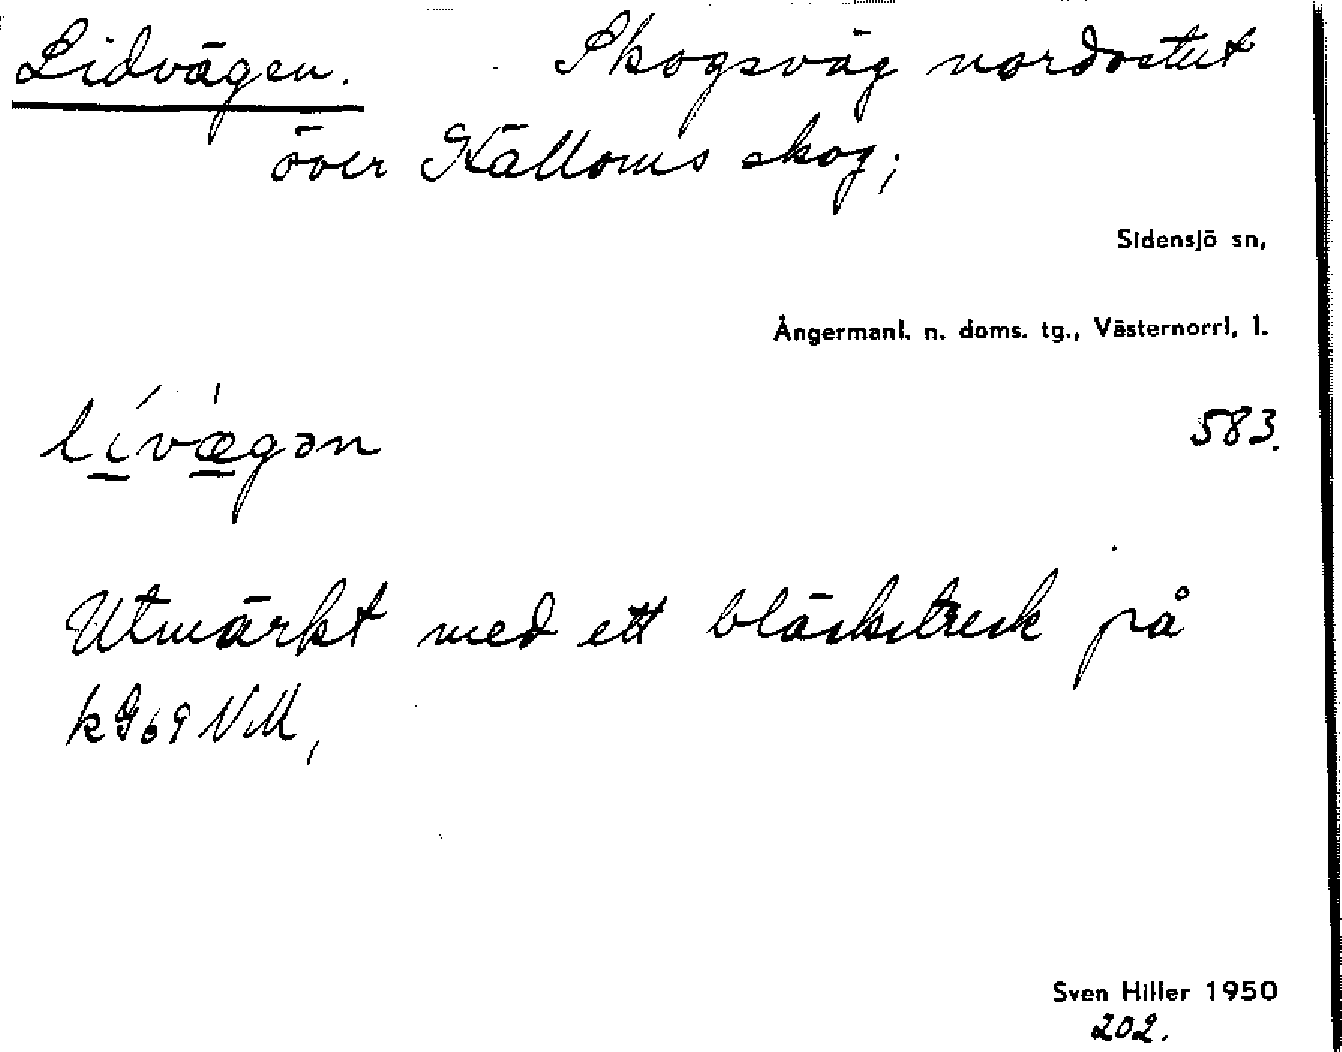 Lidvägen. Skogsväg nordostut
över Källoms skog;
Sidensjö sn,
Ångermanl. n. doms. tg., Västernorrl. l.
li´væ`gən
583.
Utmärkt med ett bläckstreck på
k G69 VM,
Sven Hiller 1950
202.